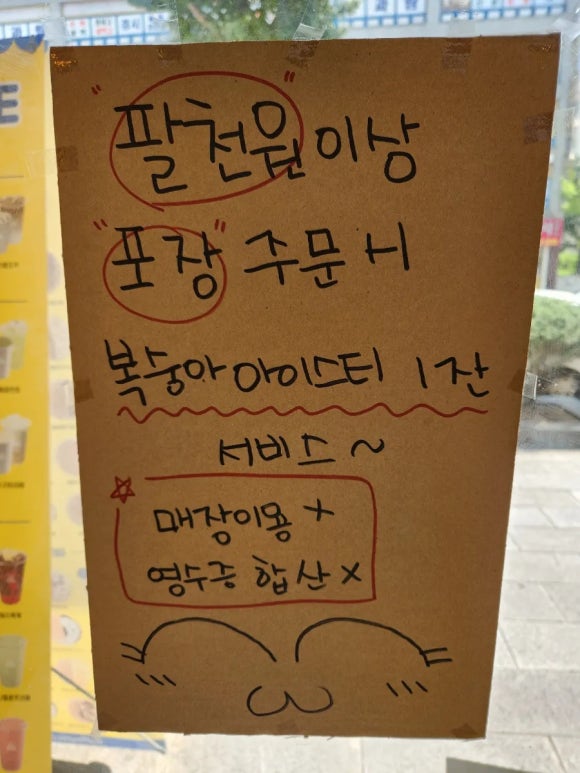 "팔천원" 이상
"포장" 주문 시
복숭아 아이스티 1잔
서비스 ~
매장이용 X
영수증 합산 X